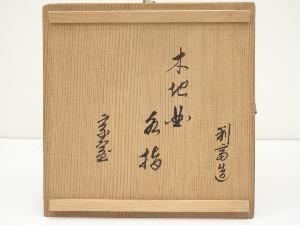 利斎造
木地曲
水指
宗室